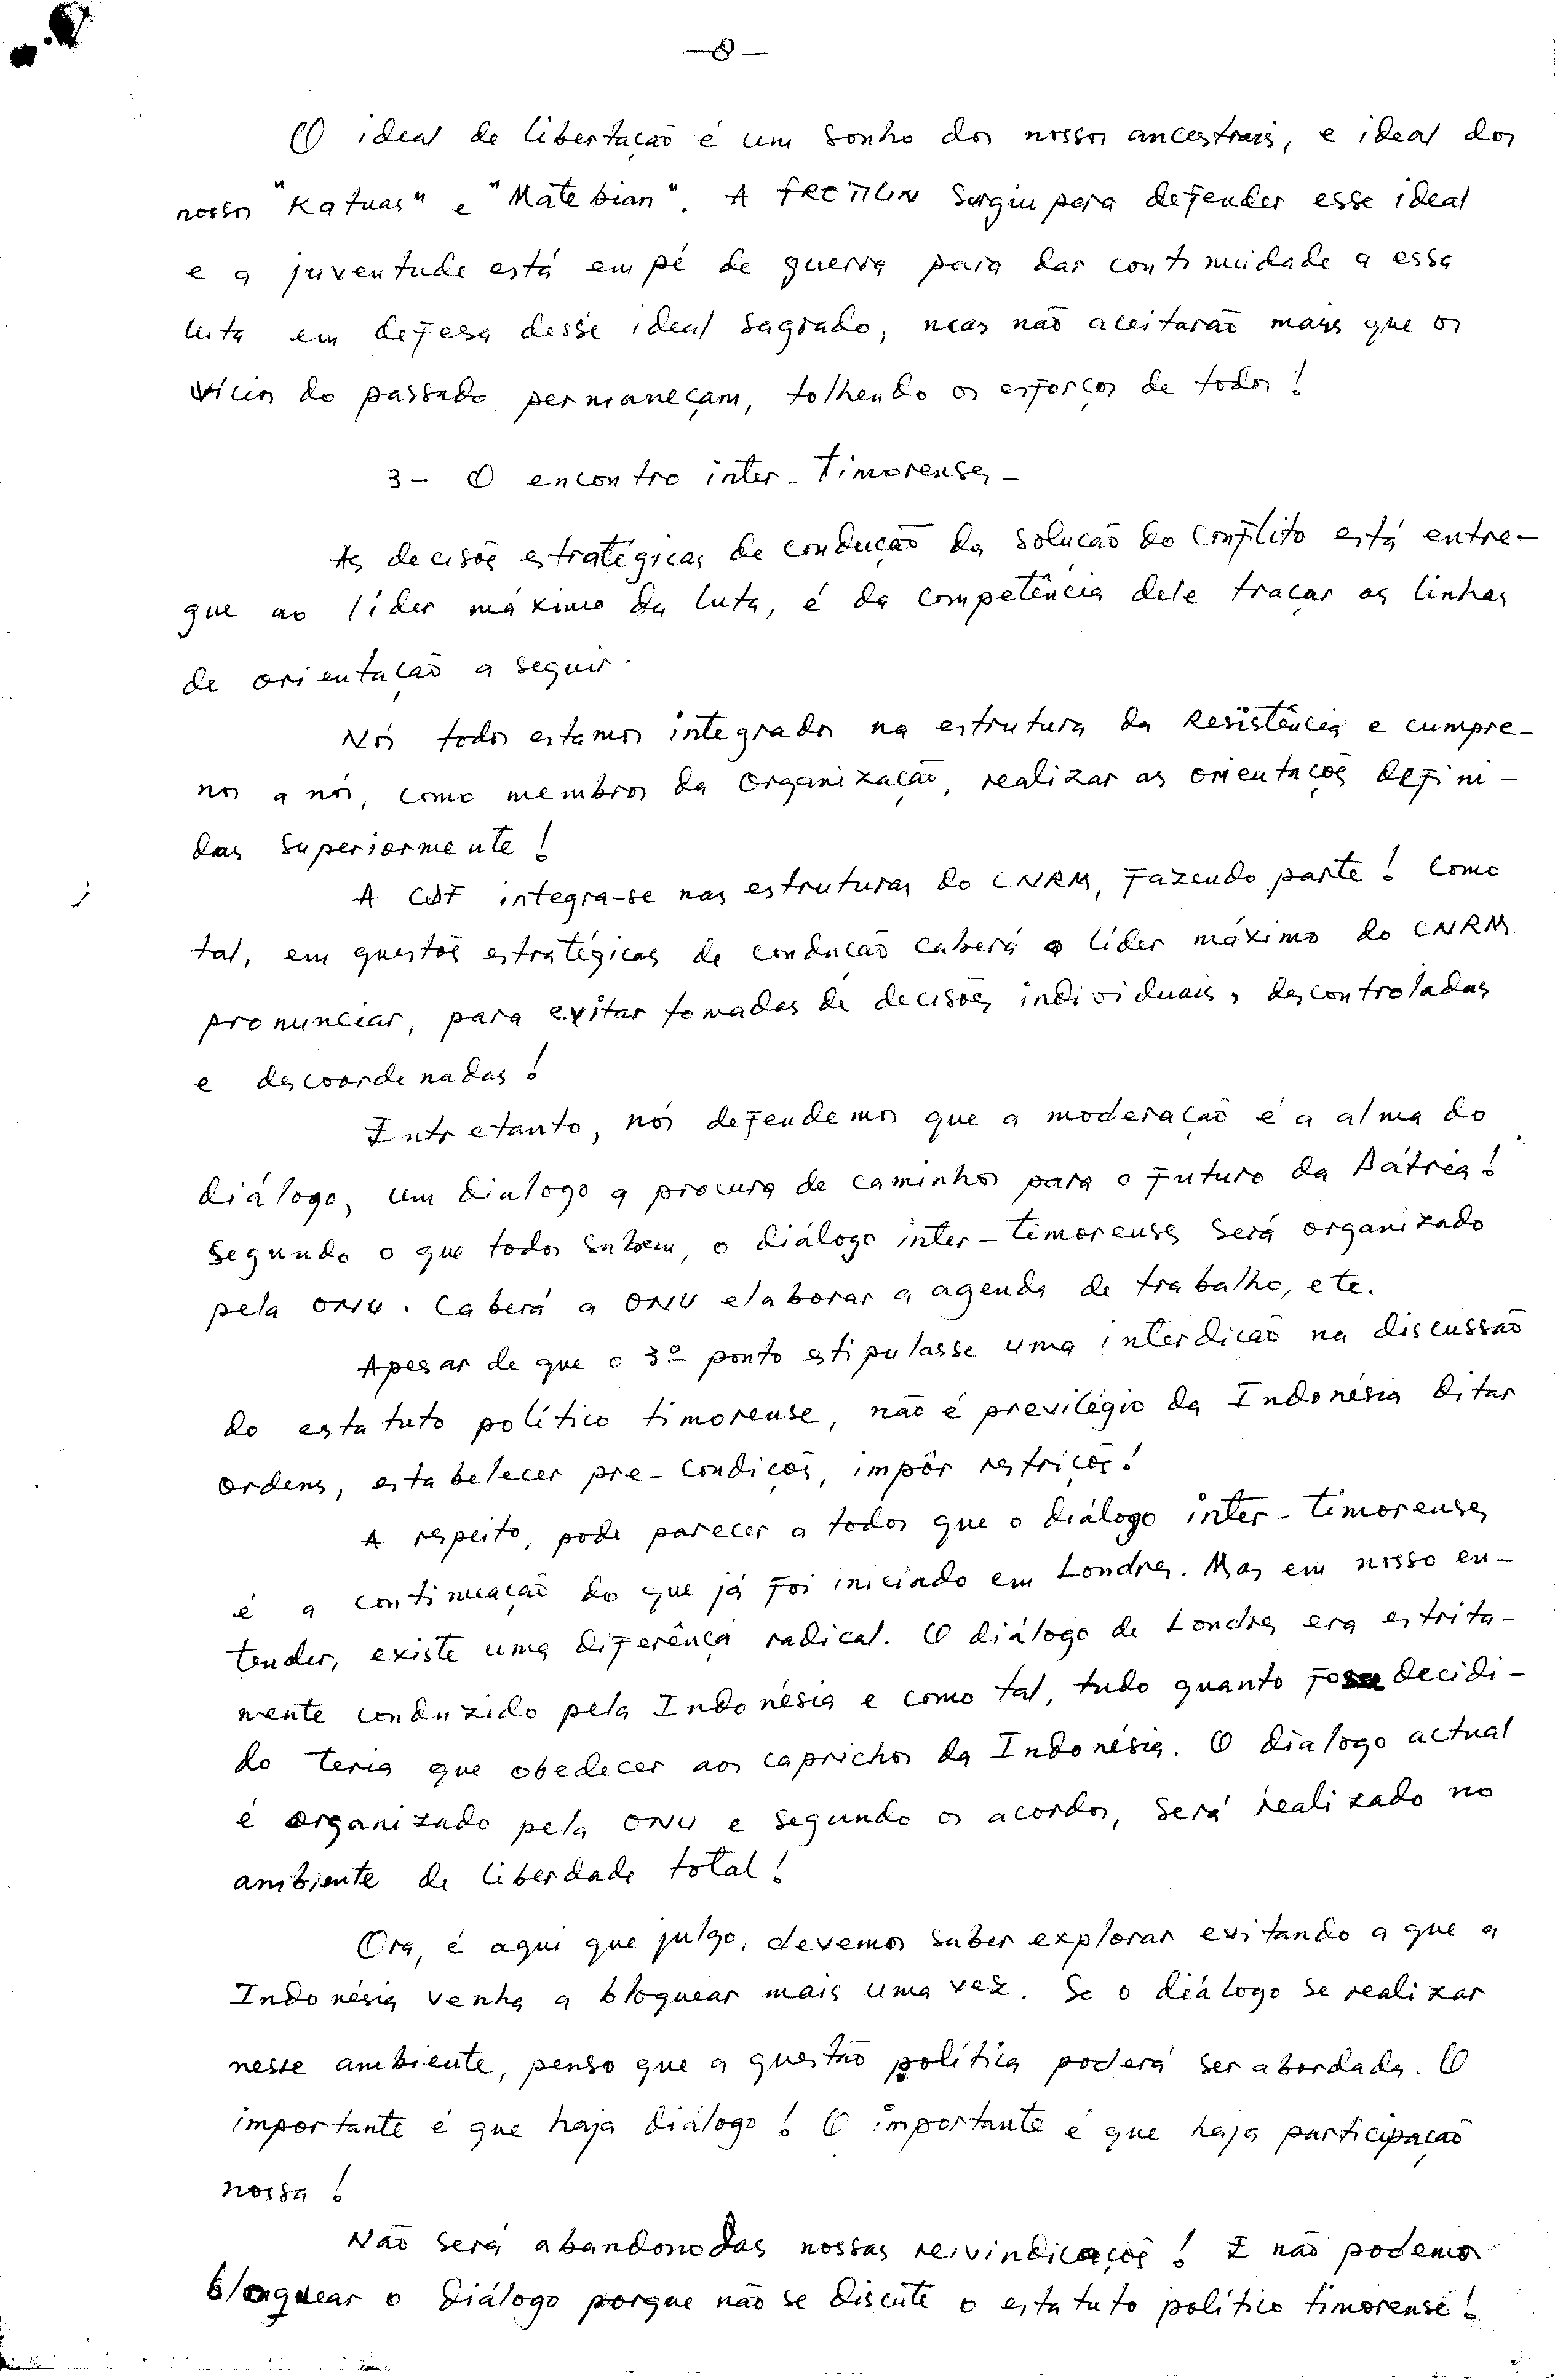 — 8 —
O ideal de libertação é um sonho dos nossos ancestrais, e ideal dos
nossos "Katuas" e "Mate bian". A FRETILIN surgiu para defender esse ideal
e a juventude está em pé de guerra para dar continuidade a essa
luta em defesa desse ideal sagrado, mas não aceitarão mais que os
vícios do passado permaneçam, tolhendo os esforços de todos!
3 – O encontro inter-Timorenses –
As decisões estratégicas de condução da solução do conflito está entre-
gue ao líder máximo da luta, é da competência dele traçar as linhas
de orientação a seguir.
Nós todos estamos integrados na estrutura da Resistência e cumpre-
nos a nós, como membros da Organização, realizar as orientações defini-
das superiormente!
A CDF integra-se nas estruturas do CNRM, fazendo parte! Como
tal, em questões estratégicas de condução caberá o líder máximo do CNRM
pronunciar, para evitar tomadas de decisões individuais, descontroladas
e descoordenadas!
Entretanto, nós defendemos que a moderação é a alma do
diálogo, um dialogo a procura de caminhos para o futuro da Pátria!
Segundo o que todos sabem, o diálogo inter-timorenses será organizado
pela ONU. Caberá a ONU elaborar a agenda de trabalho, etc.
Apesar de que o 3º ponto estipulasse uma interdição na discussão
do estatuto político timorense, não é previlégio da Indonésia ditar
ordens, estabelecer pre-condições, impôr restrições!
A respeito, pode parecer a todos que o diálogo inter-timorenses
é a continuação do que já foi iniciado em Londres. Mas em nosso en-
tender, existe uma diferênça radical. O diálogo de Londres era estrita-
mente conduzido pela Indonésia e como tal, tudo quanto fosse decidi-
do teria que obedecer aos caprichos da Indonésia. O dialogo actual
é organizado pela ONU e segundo os acordos, será realizado no
ambiente de liberdade total!
Ora, é aqui que julgo, devemos saber explorar evitando a que a
Indonésia venha a bloquear mais uma vez. Se o diálogo se realizar
nesse ambiente, penso que a questão política poderá ser abordada. O
importante é que haja diálogo! O importante é que haja participação
nossa!
Não será abandonodas nossas reivindicações! E não podemos
bloquear o diálogo porque não se discute o estatuto político timorense!